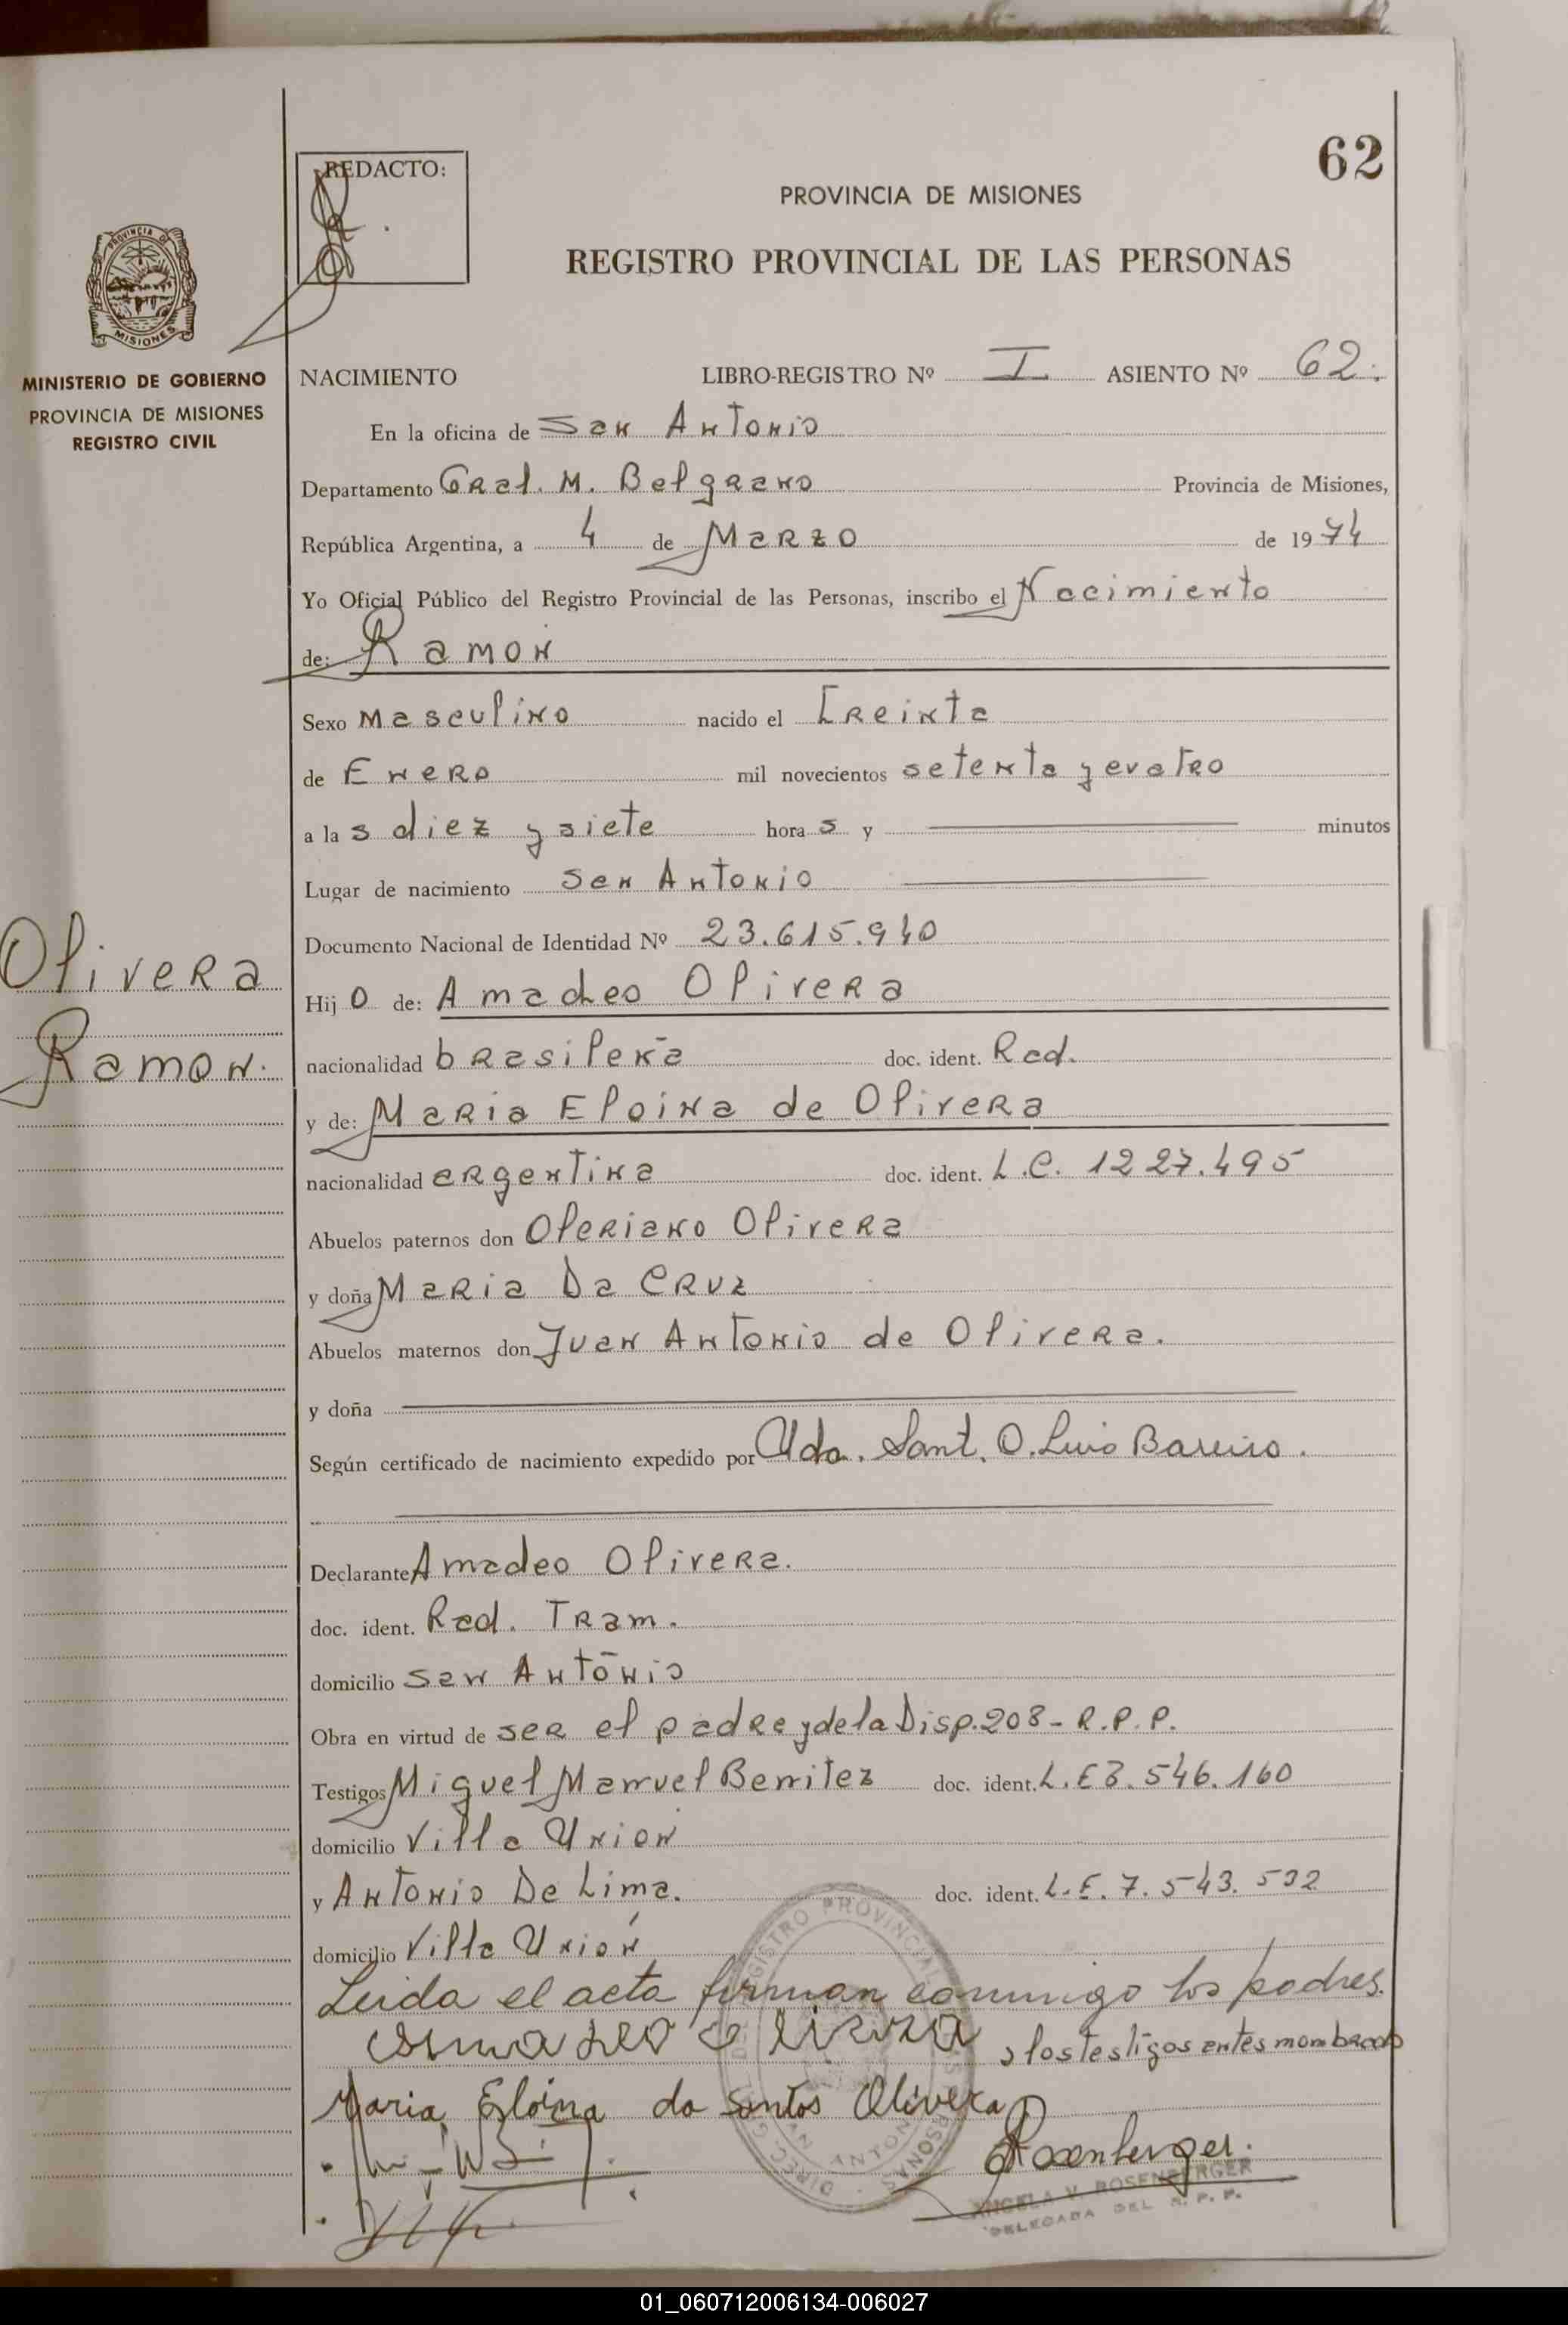 62
REDACTO:
PROVINCIA DE MISIONES
REGISTRO PROVINCIAL DE LAS PERSONAS
PROVINCIA DE
MISIONES
MINISTERIO DE GOBIERNO
PROVINCIA DE MISIONES
REGISTRO CIVIL
NACIMIENTO LIBRO-REGISTRO Nº I ASIENTO Nº 62.
En la oficina de San Antonio
Departamento Gral. M. Belgrano Provincia de Misiones,
República Argentina, a 4 de Marzo de 1974
Yo Oficial Público del Registro Provincial de las Personas, inscribo el Nacimiento
de: Ramon
Sexo Masculino nacido el Treinta
de Enero mil novecientos setenta y cuatro
a la s diez y siete hora s y minutos
Lugar de nacimiento San Antonio
Documento Nacional de Identidad Nº 23.615.940
Olivera
Ramon.
Hij o de: Amadeo Olivera
nacionalidad brasileña doc. ident. Rad.
y de: Maria Eloina de Olivera
nacionalidad argentina doc. ident. L.C. 1227.495
Abuelos paternos don Oleriano Olivera
y doña Maria Da Cruz
Abuelos maternos don Juan Antonio de Olivera.
y doña
Según certificado de nacimiento expedido por Uda. Sant. O. Luis Bareiro.
Declarante Amadeo Olivera.
doc. ident. Rad. Tram.
domicilio San Antonio
Obra en virtud de ser el padre y de la Disp. 208 - R.P.P.
Testigos Miguel Manuel Benitez doc. ident. L.E 3.546.160
domicilio Villa Union
y Antonio De Lima. doc. ident. L.E. 7.543.532
domicilio Villa Unión
Leida el acta firman conmigo los padres.
Amadeo Olivera y los testigos antes mombrados
Maria Eloina do Santos Olivera
Rosenberger.
ANGELA V. ROSENBERGER
DELEGADA DEL R.P.P.
01_060712006134-006027